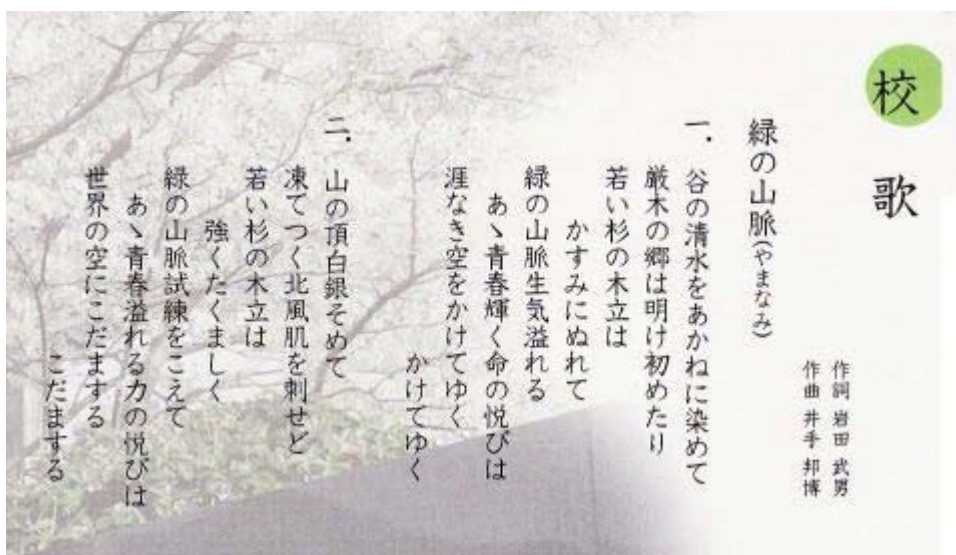 校歌
緑の山脈(やまなみ)
作詞 岩田 武男
作曲 井手 邦博
一. 谷の清水をあかねに染めて
厳木の郷は明け初めたり
若い杉の木立は
かすみにぬれて
緑の山脈生気溢れる
あゝ青春輝く命の悦びは
涯なき空をかけてゆく
かけてゆく
二. 山の頂白銀そめて
凍てつく北風肌を刺せど
若い杉の木立は
強くたくましく
緑の山脈試練をこえて
あゝ青春溢れる力の悦びは
世界の空にこだまする
こだまする